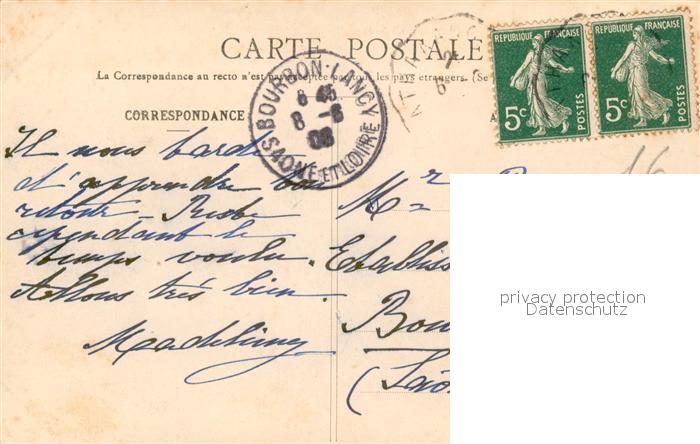 CARTE POSTALE
La Correspondance au recto n'est pas acceptée par tous les pays étrangers. (Se
CORRESPONDANCE
REPUBLIQUE FRANÇAISE
5c
POSTES
REPUBLIQUE FRANÇAISE
5c
POSTES
BOURBON-LANCY
8 45
8 -6
08
SAONE ET LOIRE
16
Il nous tarde
d'apprendre ton
retour. Reste
cependant le
temps voulu.
Allons très bien.
Mr
Etabliss
Bou
(Saô
privacy protection
Datenschutz